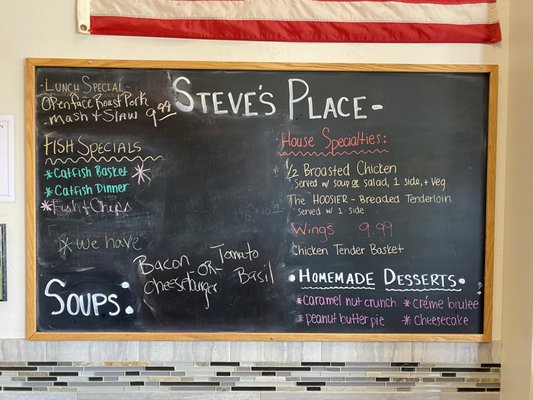 Lunch Special-
Openface Roast Pork
Mash & Slaw 9.99
Steve's Place-
Fish Specials
*Catfish Basket *
*Catfish Dinner
*Fish & Chips
* We have
Soups:
Bacon OR Tomato
Cheeseburger Basil
House Specialties:
1/2 Broasted Chicken
Served w/ soup or salad, 1 side, + veg
The HOOSIER - Breaded Tenderloin
Served w/ 1 side
Wings 9.99
Chicken Tender Basket
• Homemade Desserts •
*Caramel nut crunch *créme brulee
*Peanut butter pie *cheesecake